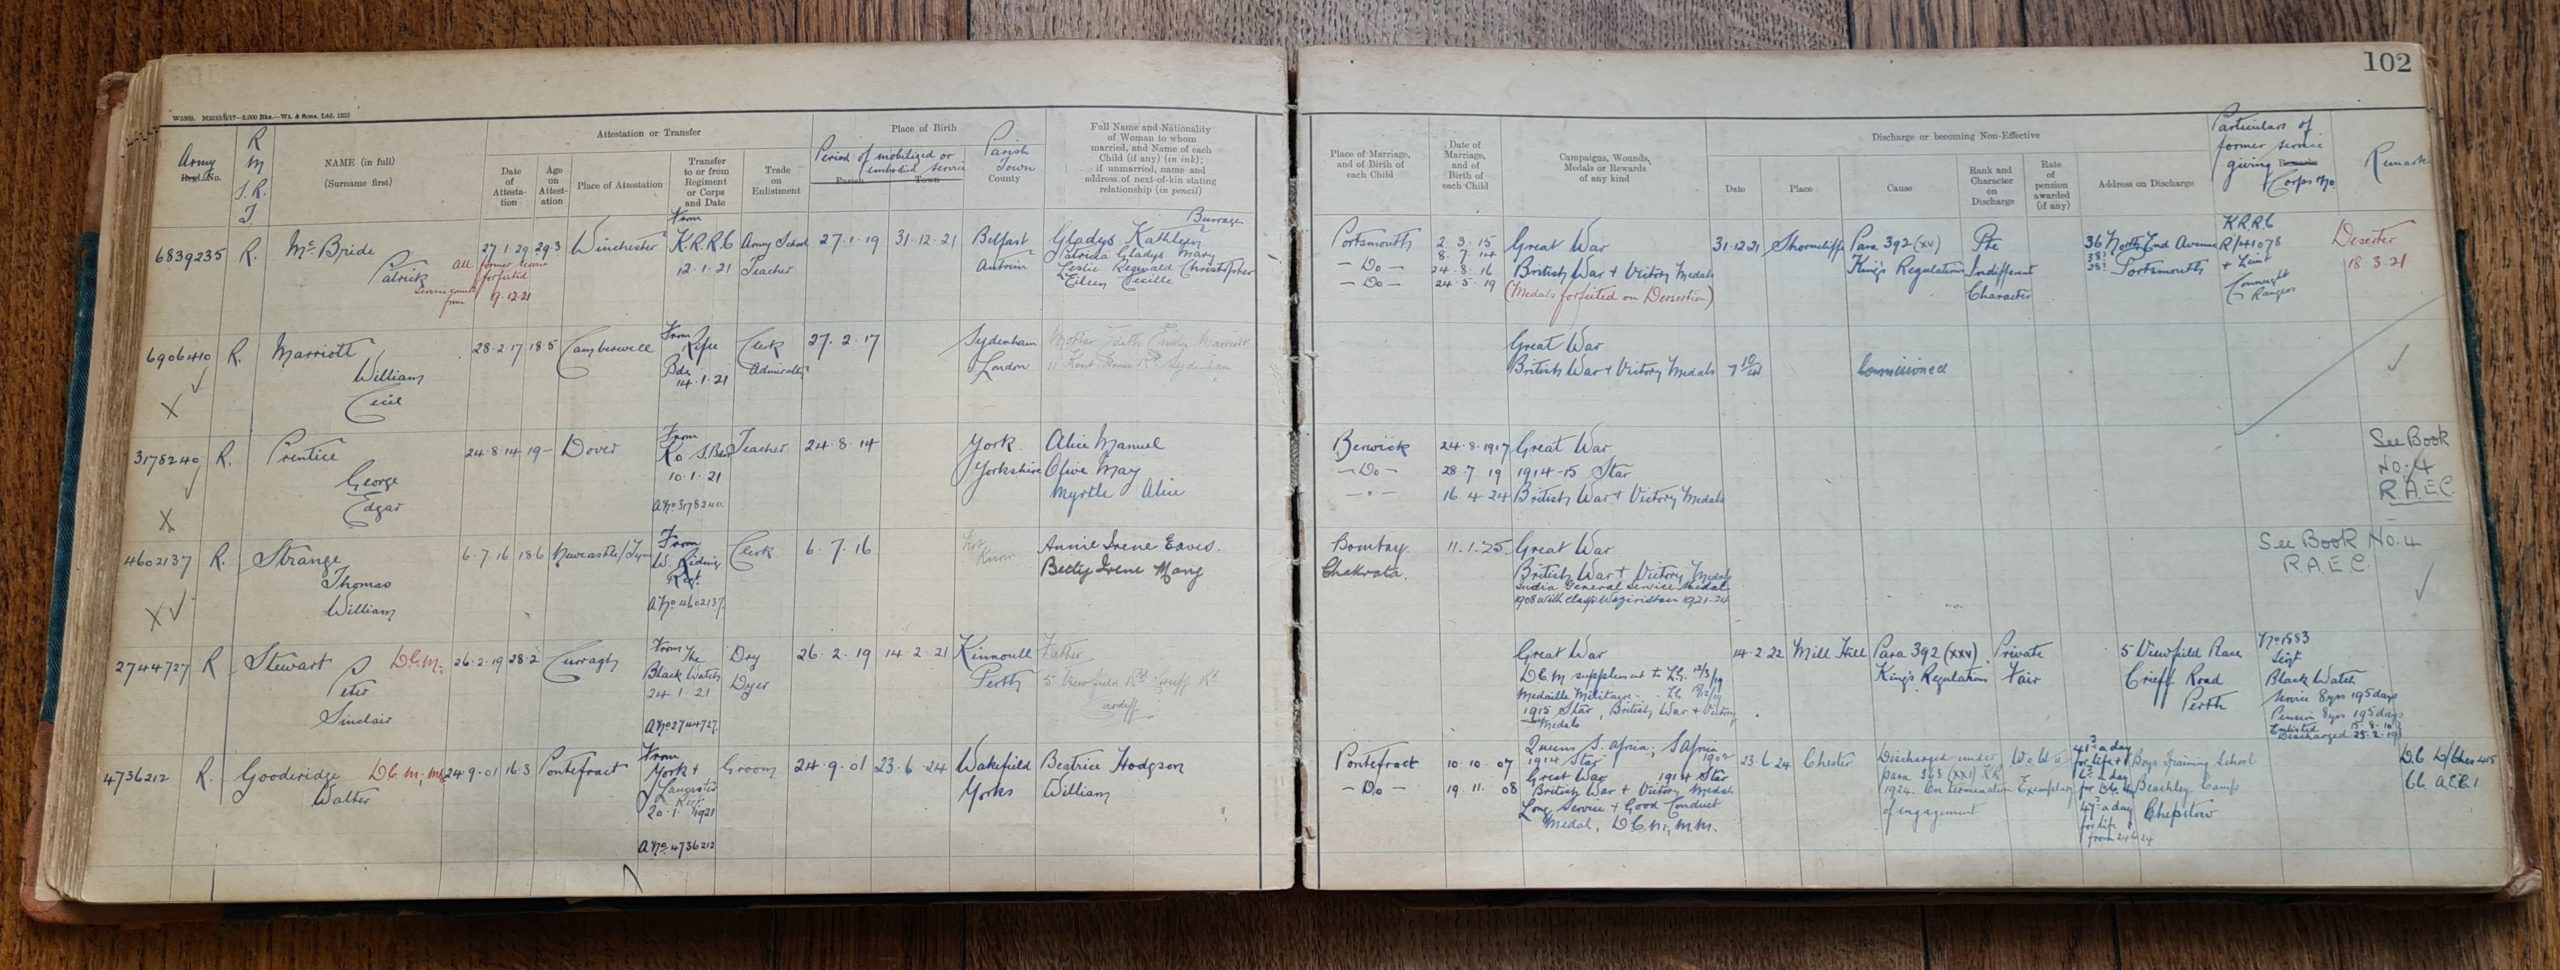 102
W5369. M2515 8/17—2,000 Bks.—Wt. & Sons, Ltd. 1255
Army
Regl. No.
R
M
S. R.
T
NAME (in full)
(Surname first)
Attestation or Transfer
Date
of
Attesta-
tion
Age
on
Attest-
ation
Place of Attestation
Transfer
to or from
Regiment
or Corps
and Date
Trade
on
Enlistment
Place of Birth
Period of mobilized or
embodied service
Parish
Town
Parish
Town
County
Full Name and Nationality
of Woman to whom
married, and Name of each
Child (if any) (in ink);
if unmarried, name and
address of next-of-kin stating
relationship (in pencil)
Place of Marriage,
and of Birth of
each Child
Date of
Marriage,
and of
Birth of
each Child
Campaigns, Wounds,
Medals or Rewards
of any kind
Discharge or becoming Non-Effective
Date
Place
Cause
Rank and
Character
on
Discharge
Rate
of
pension
awarded
(if any)
Address on Discharge
Particulars of
former service
giving Remarks
Corps No
Remarks
6839235
R.
McBride
Patrick
27.1.29
29.3
All former service
forfeited
Service counts
from 9.12.21
Winchester
From
K.R.R.C
12.1.21
Army School
Teacher
27.1.19
31.12.21
Belfast
Antrim
Burrage
Gladys Kathleen
Patricia Gladys Mary
Leslie Reginald Christopher
Eileen Cecille
Portsmouth
— Do —
— Do —
2.3.15
8.7.14
24.8.16
24.5.19
Great War
British War + Victory Medals
(Medals forfeited on Desertion)
31.12.21
Shorncliffe
Para 392 (XV)
King's Regulations
Pte
Indifferent
Character
36 North End Avenue
Portsmouth
K.R.R.C
R/41078
Connaught
Rangers
Deserter
18.3.21
6906410
R.
Marriott
William
Cecil
28.2.17
18.5
Camberwell
From
Rifle
Bde
14.1.21
Clerk
Admiralty
27.2.17
Sydenham
London
Mother Edith Emily Marriott
Sydenham
Great War
British War + Victory Medals
Commissioned
3178240
R.
Prentice
George
Edgar
24.8.14
19 –
Dover
From
K.O.S.B.
10.1.21
A No 3178240
Teacher
24.8.14
York
Yorkshire
Alice Manuel
Olive May
Myrtle Alice
Berwick
— Do —
— " —
24.8.1917
28.7.19
16.4.24
Great War
1914-15 Star
British War + Victory Medals
See Book
No. 4
R.A.E.C.
4602137
R.
Strange
Thomas
William
6.7.16
18.6
Newcastle/Tyne
From
W. Riding
Regt
A No 4602137
Clerk
6.7.16
not
known
Annie Irene Eaves.
Betty Irene Mary
Bombay.
Chakrata.
11.1.25.
Great War
British War + Victory Medals
India General Service Medal
1908 with clasp Waziristan 1921-24
See Book No. 4
R.A.E.C.
2744727
R
Stewart
D.C.M.
Peter
Sinclair
26.2.19
28.2
Curragh
From The
Black Watch
24.1.21
A No 2744727
Dry
Dyer
26.2.19
14.2.21
Kinnoull
Perth
Father
5 Viewfield Rd Crieff Rd
Cardiff
Great War
D.C.M supplement to L.G. 12/3/19
Medaille Militaire – L.G.
1915 Star, British War + Victory
Medals
14.2.22
Mill Hill
Para 392 (XXV)
King's Regulations
Private
Fair
5 Viewfield Place
Crieff Road
Perth
No 1883
Sergt
Black Watch
Service 8yrs 195 days
Pension 8yrs 195 days
Enlisted 15.8.10
Discharged 25.2.19
4736212
R.
Gooderidge
D.C.M. M.M.
Walter
24.9.01
16.3
Pontefract
From
York +
Lancaster
Regt
20.1.1921
A No. 4736212
Groom
24.9.01
23.6.24
Wakefield
Yorks
Beatrice Hodgson
William
Pontefract
— Do —
10.10.07
19.11.08
Queens S. Africa, S Africa
1902
1914 Star
Great War 1914 Star
British War + Victory Medals
Long Service + Good Conduct
Medal, D.C.M., M.M.
23.6.24
Chester
Discharged under
para 363 (XXI) K.R
1924. On termination
of engagement
W.O. Cl
Exemplary
a day
for life +
a day
for D.C.M
47d a day
for life
from 24.6.24
Boys Training School
Beachley Camp
Chepstow